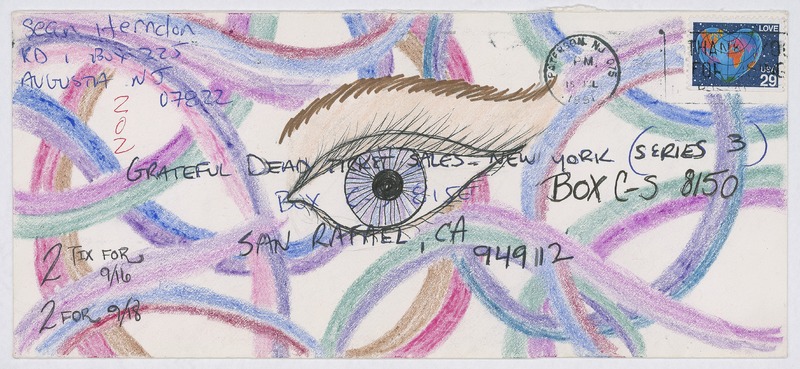 Sean Herndon
RD 1 BOX 225
AUGUSTA NJ
07822
202
PATERSON, NJ 075
PM
LOVE
USA
29
GRATEFUL DEAD TICKET SALES - NEW YORK (SERIES 3)
BOX
BOX C-S 8150
SAN RAFAEL, CA
949112
2 TIX FOR
9/16
2 FOR 9/18